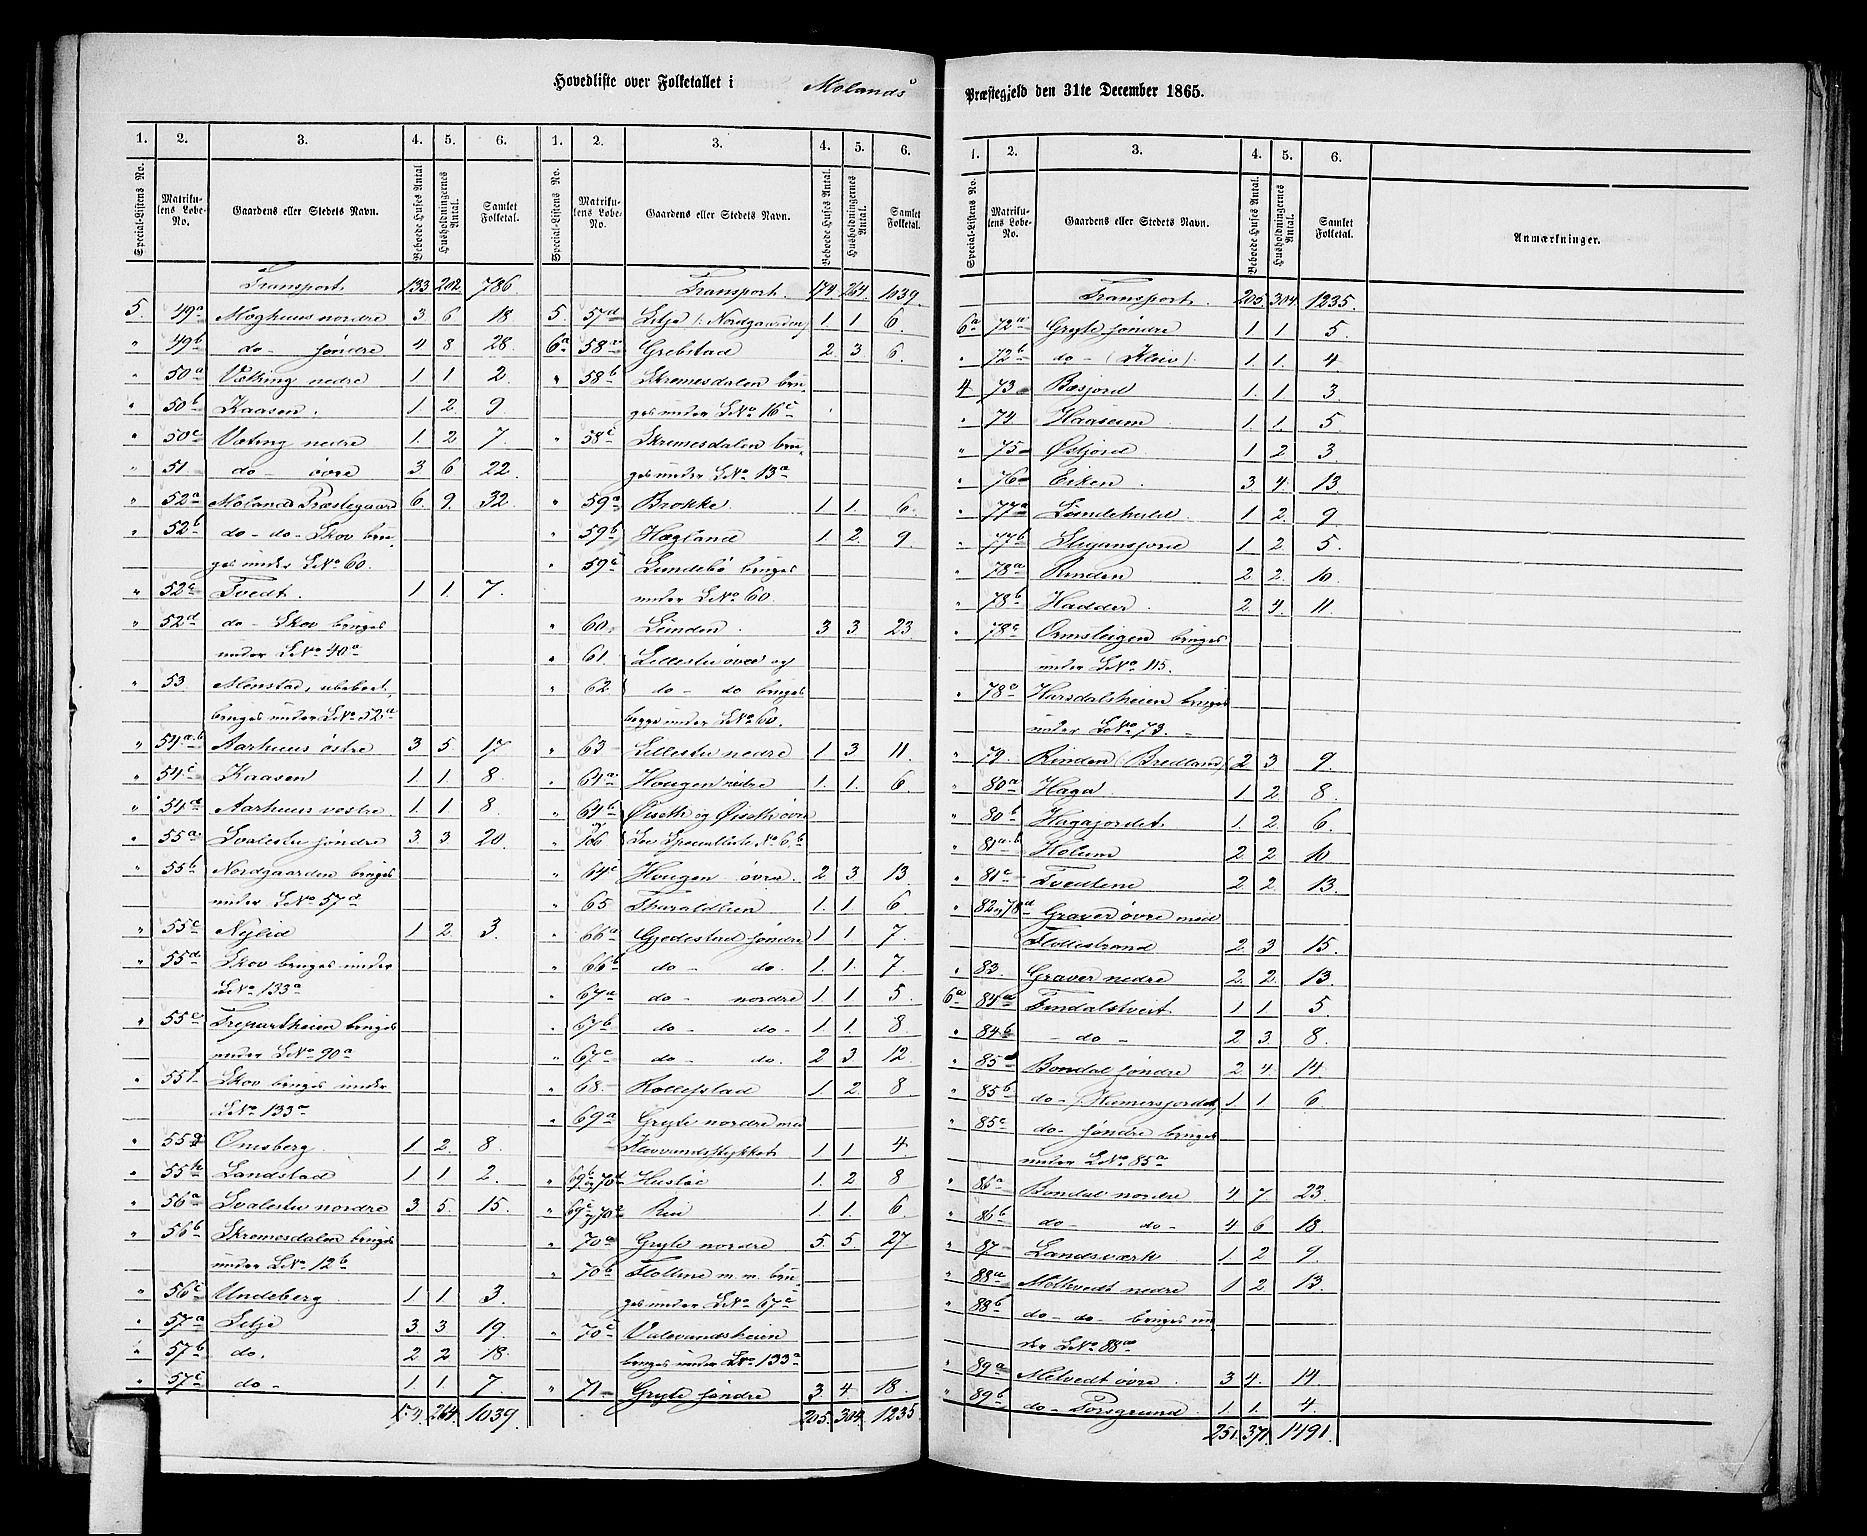 Hovedliste over Folketallet i Molands Præstegjeld den 31te December 1865.
1. 2. 3. 4. 5. 6. 1. 2. 3. 4. 5. 6.
Special-Listens No. Matrikulens Løbe-No. Gaardens eller Stedets Navn. Beboede Huses Antal Husholdningernes Antal. Samlet Folketal. Special-Listens No. Matrikulens Løbe-No. Gaardens eller Stedets Navn. Beboede Huses Antal. Husholdningernes Antal. Samlet Folketal.
Transport. 133 202 786
5. 49a Moghuus nordre 3 6 18
" 49b do- søndre 4 8 28.
" 50a Vætting nedre 1 1 2
" 50b Kaasen. 1 2 9
" 50c Væting nedre 1. 2 7.
" 51. do- øvre 3 6 22
" 52a Molands Præstegaard 6. 9. 32
" 52b do- do- Skov bru-
ges under LNo 60.
" 52c Tvedt. 1 1. 7.
" 52d do- Skov bruges
under LNo 40a
" 53 Monstad, ubeboet,
bruges under LNo 52a
" 54a.b Aarhuus østre 3 5 17
" 54c Kaasen 1. 1. 8
" 54d Aarhuus vestre 1. 1 8
" 55a Svalestu søndre 3. 3. 20.
" 55b Nordgaarden bruges
under LNo 57d
" 55c Nylid 1 2. 3.
" 55d Skov bruges under
LNo 133a
" 55e Trepartheien bruges
under LNo 90a
" 55f Skov bruges under
LNo 133a
" 55g Omsberg 1 2. 8.
" 55h Landstad 1 1 2.
" 56a Svalestu nordre 3. 5. 15.
" 56b Skremesdalen bruges
under LNo 12b
" 56c Undeberg 1 1 3.
" 57a Lilje 3. 3 19
" 57b do. 2 2 18.
" 57c do- 1 1. 7
174. 264. 1039.
Transport. 174. 264. 1039
5. 57d Lilje (: Nordgaarden) 1. 1 6.
6a 58a Grebstad 2. 3. 6.
" 58b Skremesdalen bru-
ges under LNo 16c
" 58c Skremesdalen bru-
ges under LNo 13a
" 59a Brokke. 1 1. 6.
" 59b Hægland 1 2. 9.
" 59c Lundebø bruges
under LNo 60.
" 60. Lunden. 3 3 23.
" 61. Lillestu øvre og
" 62. do- do bruges
begge under LNo 60.
" 63 Lillestu nedre 1. 3 11.
" 64a. Hougen nedre 1. 1. 6.
" 64b Øiseth og Øiseth øvre
106 See Specialliste No 6.b
" 64c Hougen øvre. 2 3 13
" 65 Tharaldlien 1. 1 6
" 66a Gjedestad søndre 1 1 7.
" 66b do- do. 1. 1. 7.
" 67a do- nordre 1. 1. 5.
" 67b do- do- 1. 1. 8
" 67c do- do. 2 3 12.
" 68. Rollefstad 1. 2. 8
" 69a Gryte nordre med
Klovvandsstykket 1 1 4
" 69b og 70d Hustøl 1. 2 8
" 69c og 70e Rii 1. 1. 6
" 70a Gryte nordre 5. 5. 27
" 70b Flottene m. m. bru-
ges under LNo 67c
" 70c Valevandsheien
bruges under LNo 133a
" 71 Gryte søndre 3. 4. 18.
205. 304. 1235.
1. 2. 3. 4. 5. 6.
Special-Listens No. Matrikulens Løbe-No. Gaardens eller Stedets Navn. Beboede Huses Antal. Husholdningernes Antal. Samlet Folketal. Anmærkninger.
Transport. 205. 304. 1235.
6a 72a Gryte søndre 1 1. 5.
. 72b do- (Kleiv). 1. 1. 4
4 73 Bøsjord 1. 1 3
" 74 Haaseum 1. 1. 5
" 75 Østjord 1 2 3
" 76 Eiken. 3. 4. 13.
" 77a Lundehuld. 1 2. 9
" 77b Slegansjord 1 2. 5.
" 78a Rinden 2 2. 10
" 78b Hadder. 2. 4. 11.
" 78c Ormsleigen bruges
under LNo 115.
" 78e Harsdalsheien bruges
under LNo 73.
" 79. Rinden (Bredland) 2 3 9
" 80a Haga. 1 2. 8.
" 80b Hagajordet 1. 2. 6.
" 81a.b Holum 2. 2. 10
" 81c Tvedtene 2. 2. 13.
" 82 og 78d Graver øvre med
Flottestrand 2. 3 15.
" 83. Graver nedre 2. 2. 13.
6a 84a Findalstveit 1 1 5
" 84b - do - 2 3. 8.
" 85a Bondal søndre 2. 4. 14.
" 85b do- (Hamersjordet) 1. 1 6
" 85c do- søndre bruges
under LNo 85a
" 86a Bondal nordre 4 7 23
" 86b do- do- 4 6 18
" 87 Landsværk 1. 2 9.
" 88a Molkvedt nedre 1 2. 13.
" 88b do- do- bruges un-
der LNo 88a
" 89a Molvedt øvre. 3 4. 14
" 89b do- Porsgrund. 1. 1. 4.
251. 371. 1491.